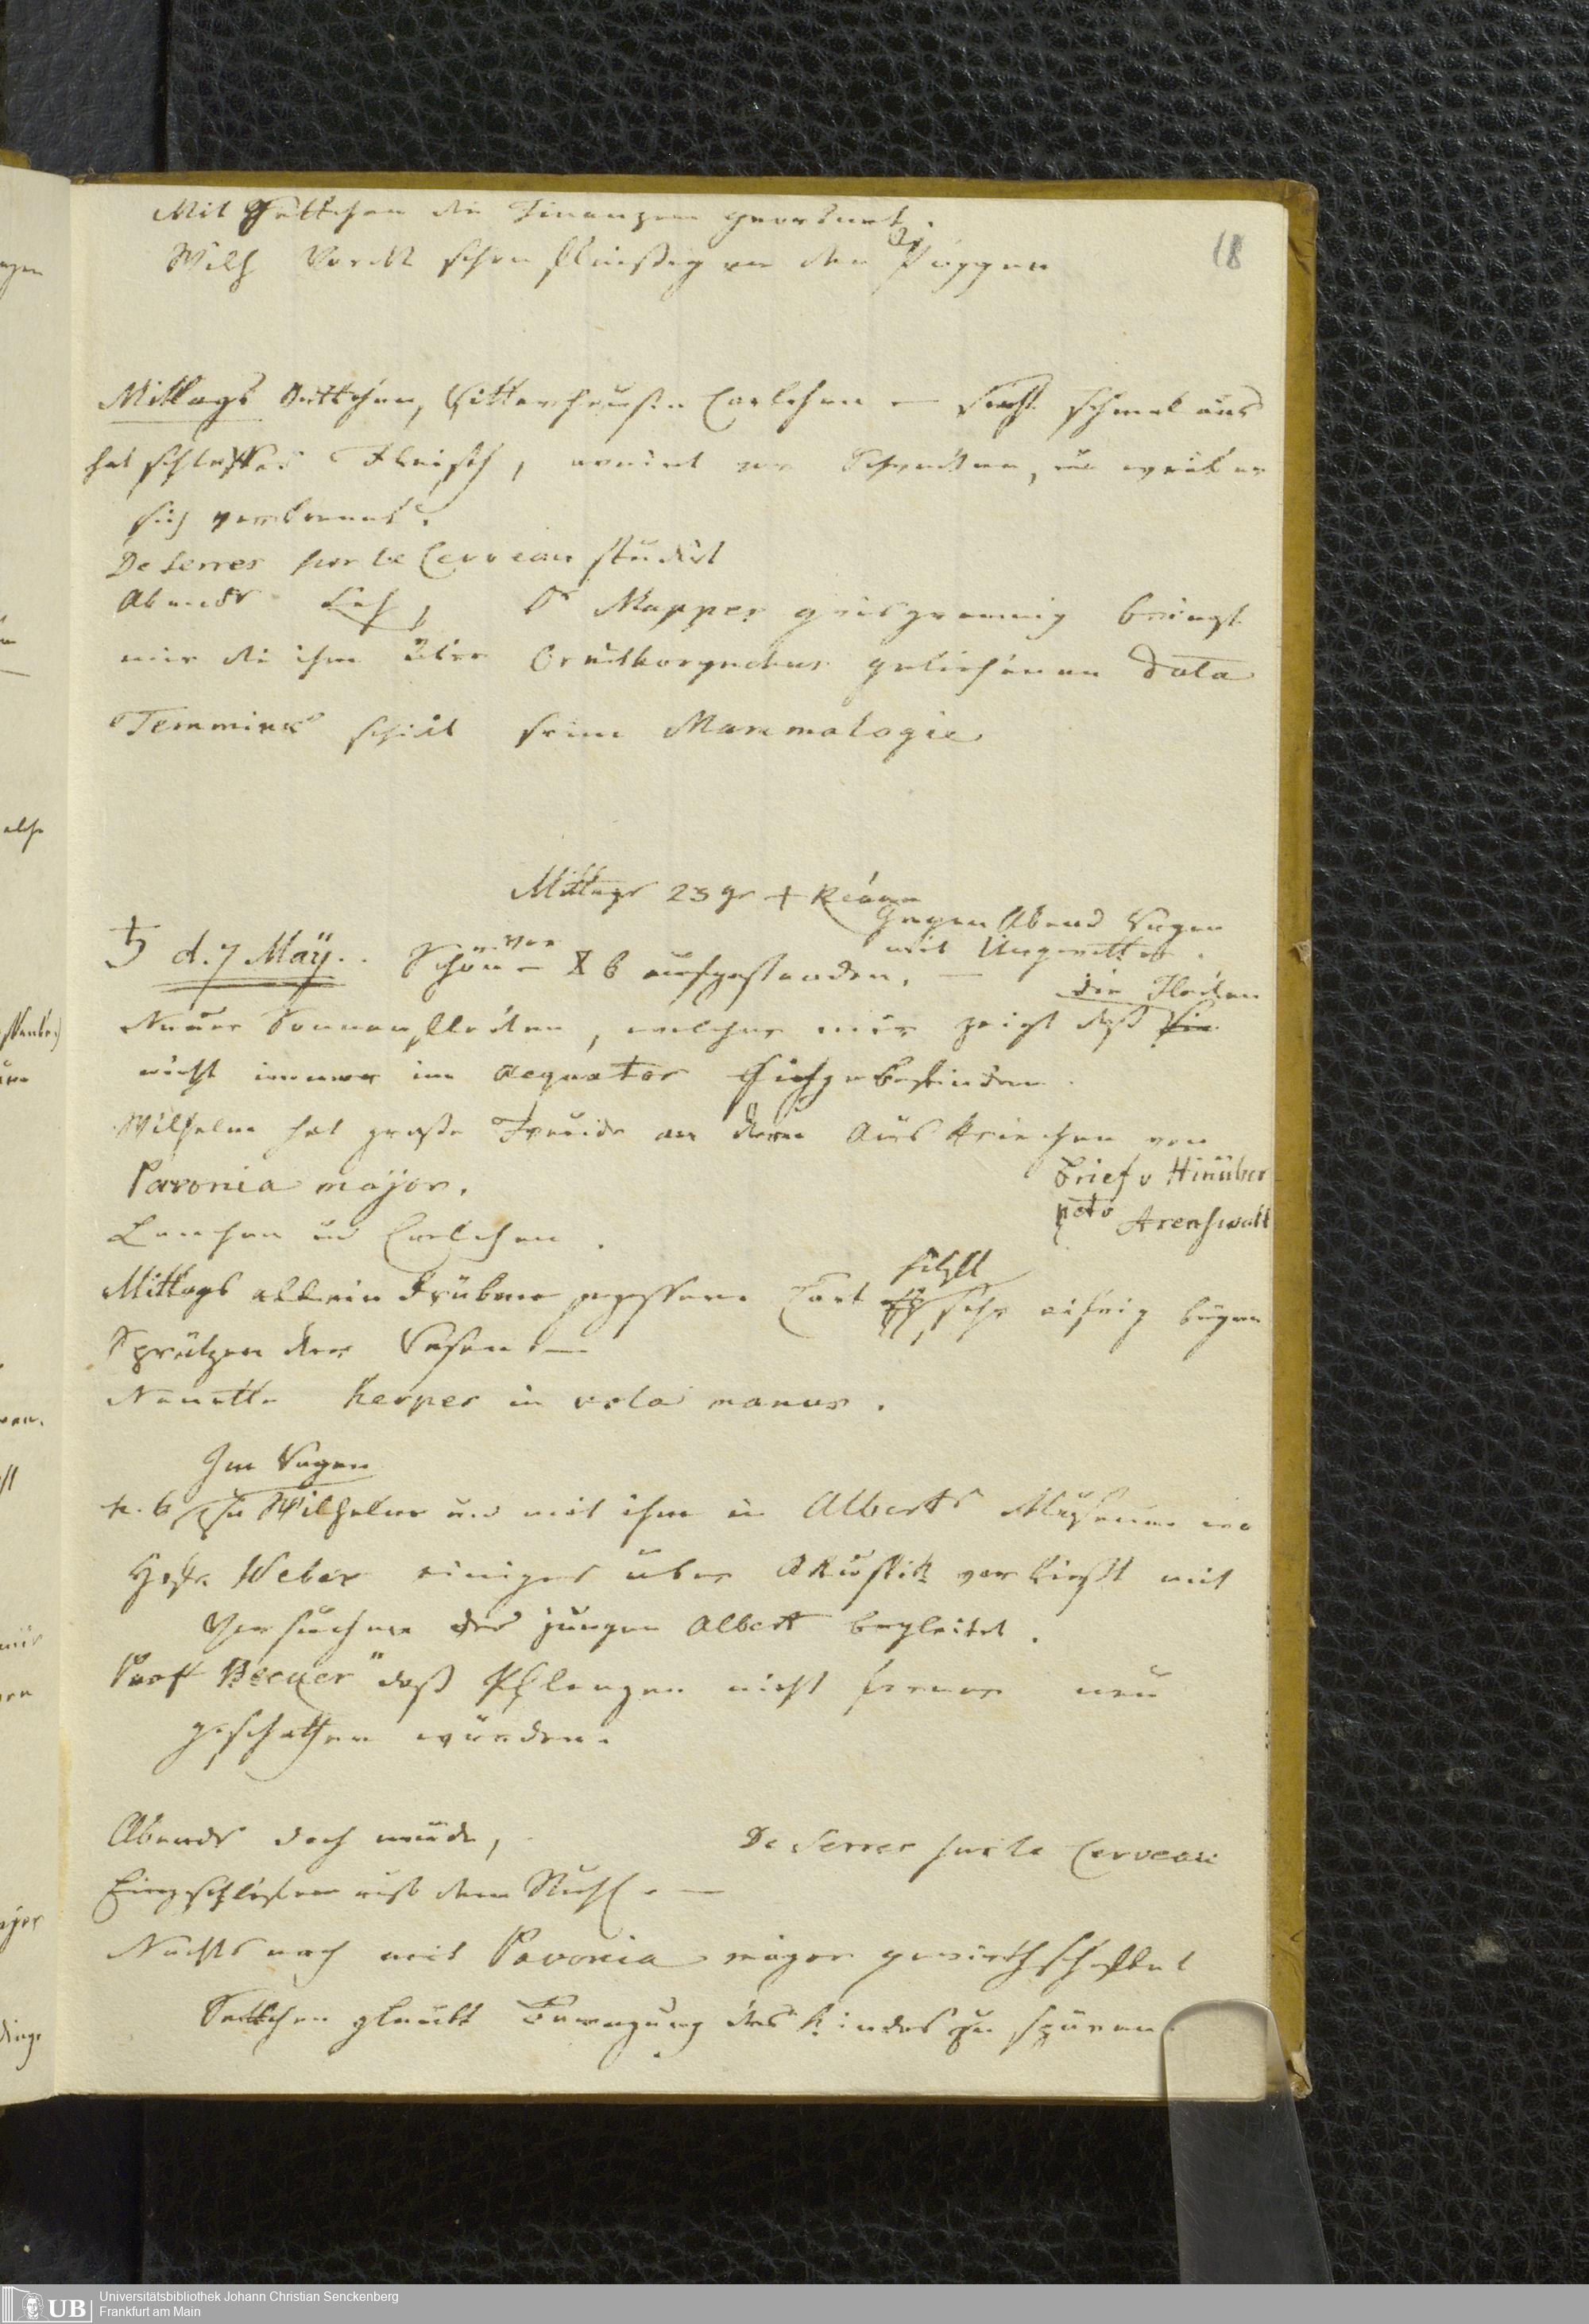 18
Mit Settchen die Finanzen geordnet.
Wilh schon fleißig an den Puppen
Mittags Settchen, Carlchen – sieht schmal aus
hat schlaffes Fleisch, weint vor Schrecken, u weil er
sich verbrannt.
De Serres sur le Cerveau studirt
Abends Dr Mapper griesgrämig bringt
mir die ihm über Ornithorynchus geliehenen Data
Temminck schickt seine Mammalogie
Mittags 23 gr + Reaum
Gegen Abend Regen
mit Ungewitter.
♄ d. 7 May. Schön – vor 6 aufgestanden. –
die Flecken
Neuer Sonnenflecken, welcher mir zeigt daß sie
nicht immer im Aequator sich befinden.
Wilhelm hat große Freude an dem Auskriechen von
Pavonia major.
Brief v Hinüber
Arenswalt
Lenchen und Carlchen.
Mittags allein drüben gegessen. Carl sehr eifrig
Spritzen der
Nanette Herpes in vola manus.
Im Regen
h. 6 zu Wilhelm und mit ihm in Alberts Museum wo
Hofr. Weber einiges über Akustik vorliest mit
Versuchen des jungen Albert begleitet.
Proff Becker "daß Pflanzen nicht ferner neu
geschaffen würden.
Abends doch müde,
De Serres sur le Cerveau
Eingeschlafen auf dem Stuhl. –
Nachts noch mit Pavonia major gewirthschaftet
Settchen glaubt Bewegung des Kindes zu spüren.
UB Universitätsbibliothek Johann Christian Senckenberg
Frankfurt am Main